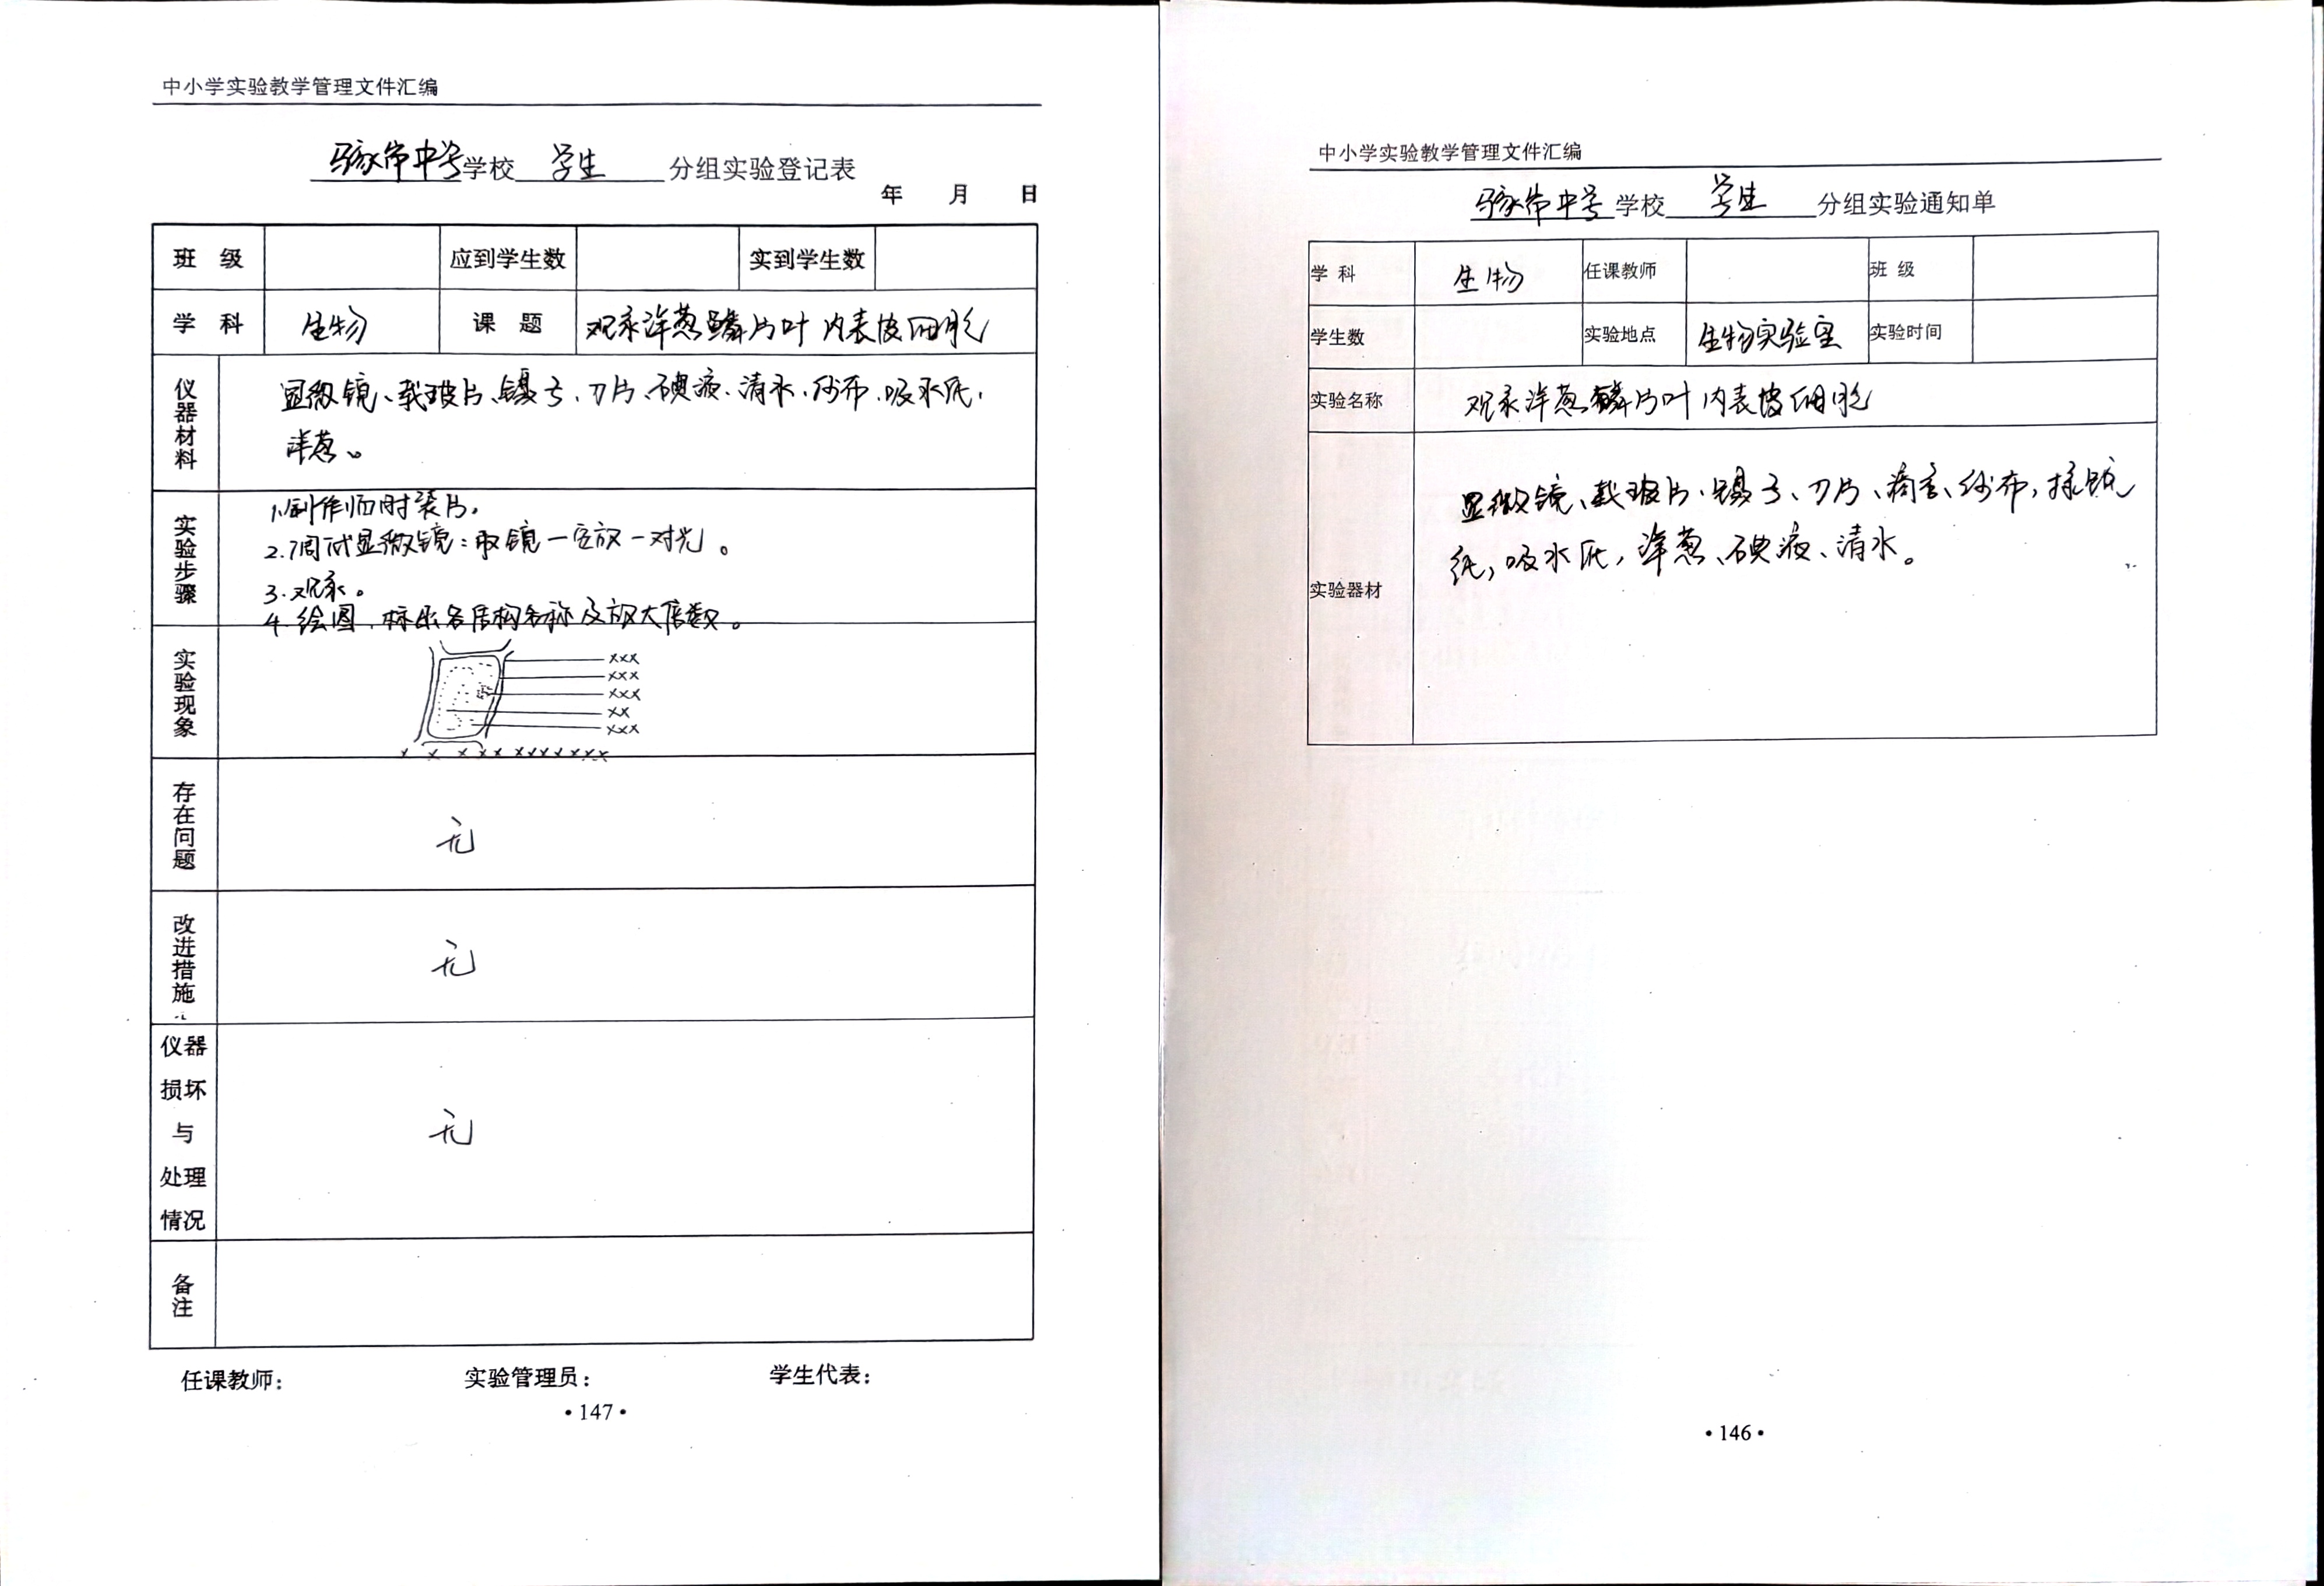 中小学实验教学管理文件汇编
马家砦中学学校 学生 分组实验登记表
年 月 日
班 级 应到学生数 实到学生数
学 科 生物 课 题 观察洋葱鳞片叶内表皮细胞
仪器材料 显微镜、载玻片、镊子、刀片、碘液、清水、纱布、吸水纸、
洋葱。
实验步骤 1.制作临时装片。
2.调试显微镜:取镜一安放一对光。
3.观察。
4.绘图,标出各结构名称及放大倍数。
实验现象
xxx
xxx
xxx
xx
xxx
x x x xx xxxxxxx
存在问题 无
改进措施 无
仪器损坏与处理情况 无
备注
任课教师: 实验管理员: 学生代表:
·147·
中小学实验教学管理文件汇编
马家砦中学学校 学生 分组实验通知单
学 科 生物 任课教师 班 级
学生数 实验地点 生物实验室 实验时间
实验名称 观察洋葱鳞片叶内表皮细胞
实验器材 显微镜、载玻片、镊子、刀片、滴管、纱布,擦镜
纸,吸水纸,洋葱、碘液、清水。
·146·